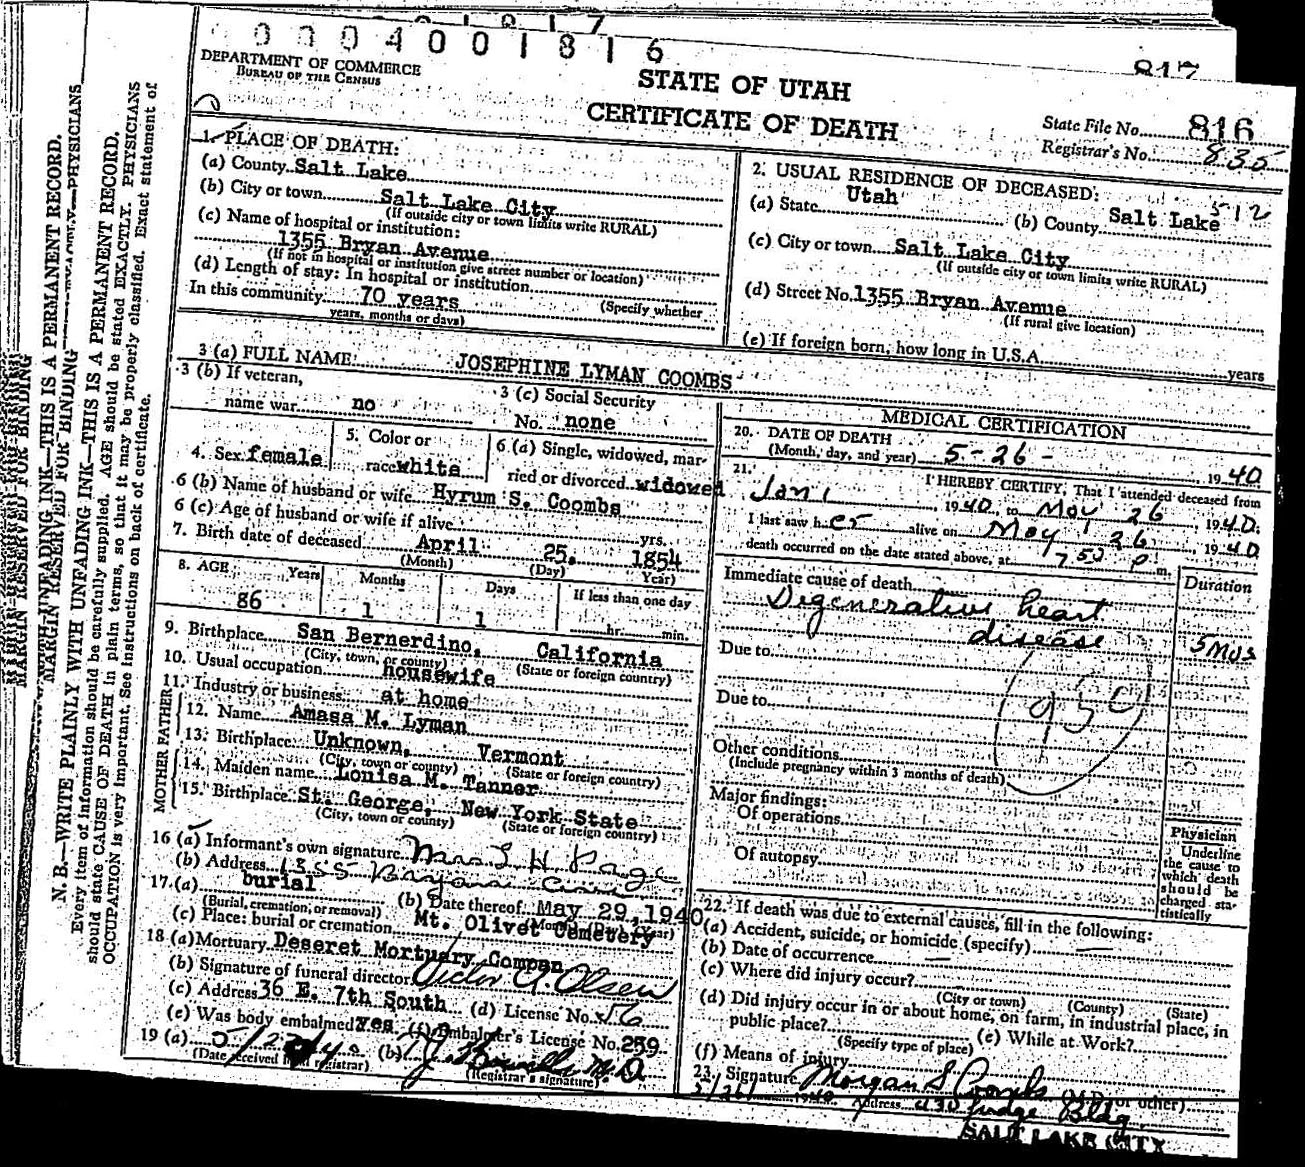 0004001816
817
DEPARTMENT OF COMMERCE
BUREAU OF THE CENSUS
STATE OF UTAH
CERTIFICATE OF DEATH
State File No. 816
Registrar's No. 835
1. PLACE OF DEATH:
(a) County Salt Lake
(b) City or town Salt Lake City
(If outside city or town limits write RURAL)
(c) Name of hospital or institution:
1355 Bryan Avenue
(If not in hospital or institution give street number or location)
(d) Length of stay: In hospital or institution
In this community 70 years (Specify whether
years, months or days)
2. USUAL RESIDENCE OF DECEASED:
(a) State Utah (b) County Salt Lake 512
(c) City or town Salt Lake City
(If outside city or town limits write RURAL)
(d) Street No. 1355 Bryan Avenue
(If rural give location)
(e) If foreign born, how long in U.S.A. years
3 (a) FULL NAME: JOSEPHINE LYMAN COOMBS
3 (b) If veteran,
name war no
3 (c) Social Security
No. none
4. Sex female
5. Color or
race white
6 (a) Single, widowed, mar-
ried or divorced widowed
6 (b) Name of husband or wife Hyrum S. Coombs
6 (c) Age of husband or wife if alive yrs.
7. Birth date of deceased April 25, 1854
(Month) (Day) Year)
8. AGE Years Months Days If less than one day
86 1 1 hr. min.
9. Birthplace San Bernerdino, California
(City, town, or county) (State or foreign country)
10. Usual occupation housewife
11. Industry or business at home
FATHER
12. Name Amasa M. Lyman
13. Birthplace Unknown, Vermont
(City, town or county) (State or foreign country)
MOTHER
14. Maiden name Louisa M. Tanner
15. Birthplace St. George, New York State
(City, town or county) (State or foreign country)
16 (a) Informant's own signature Mrs L H Page
(b) Address 1355 Bryan Ave
17. (a) burial (b) Date thereof May 29, 1940
(Burial, cremation, or removal) (Month) (Day) (Year)
(c) Place: burial or cremation Mt. Olivet Cemetery
18 (a) Mortuary Deseret Mortuary Compan
(b) Signature of funeral director Victor A. Olsen
(c) Address 36 E. 7th South (d) License No. 56
(e) Was body embalmed yes (f) Embalmer's License No. 259
19 (a) (b) M.D.
(Date received registrar) (Registrar's signature)
MEDICAL CERTIFICATION
20. DATE OF DEATH
(Month, day, and year) 5-26- 1940
21. I HEREBY CERTIFY, That I attended deceased from
Jan 1 1940, to May 26, 1940.
I last saw her alive on May 26, 1940
death occurred on the date stated above, at 7 50 P m.
Immediate cause of death Duration
Degenerative heart
disease 5 Mos
Due to
Due to
Other conditions
(Include pregnancy within 3 months of death)
Major findings:
Of operations
Of autopsy
Physician
Underline
the cause to
which death
should be
charged sta-
tistically
22. If death was due to external causes, fill in the following:
(a) Accident, suicide, or homicide (specify) —
(b) Date of occurrence —
(c) Where did injury occur?
(City or town) (County) (State)
(d) Did injury occur in or about home, on farm, in industrial place, in
public place? (e) While at Work?
(Specify type of place)
(f) Means of injury
23. Signature Morgan S Coombs (M.D. or other)
5/26/ 1940 Address 430 Judge Bldg
SALT LAKE CITY
MARGIN RESERVED FOR BINDING
N. B.—WRITE PLAINLY WITH UNFADING INK—THIS IS A PERMANENT RECORD.
Every item of information should be carefully supplied. AGE should be stated EXACTLY. PHYSICIANS
should state CAUSE OF DEATH in plain terms, so that it may be properly classified. Exact statement of
OCCUPATION is very important. See instructions on back of certificate.